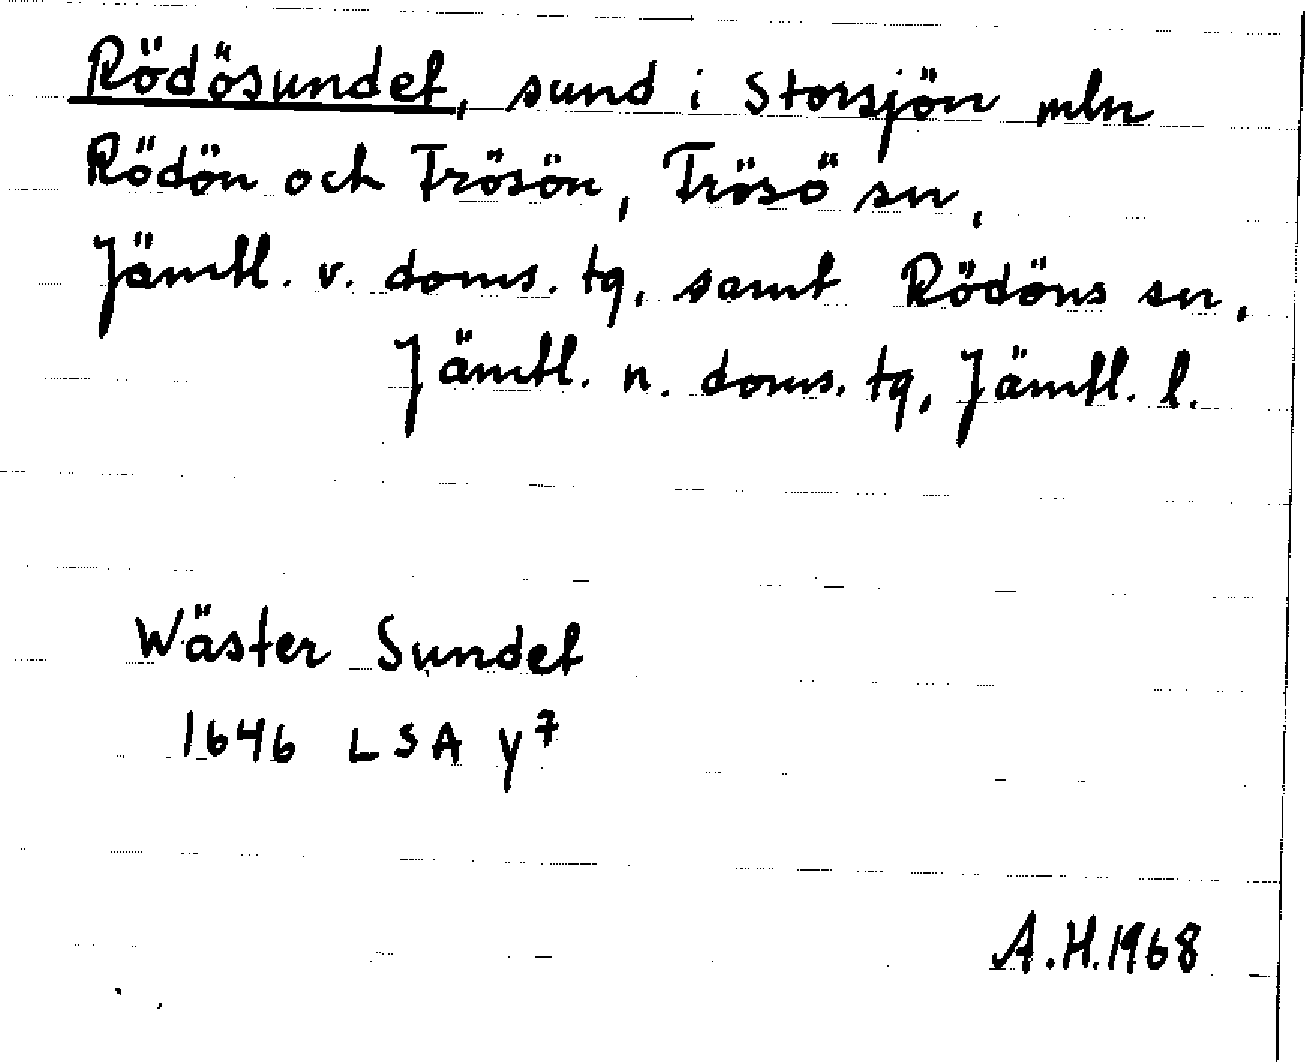 Rödösundet, sund i Storsjön mln
Rödön och Frösön, Frösö sn,
Jämtl. v. doms. tg, samt Rödöns sn,
Jämtl. n. doms. tg, Jämtl. l.
Wäster Sundet
1646 LSA y⁷
A.H.1968